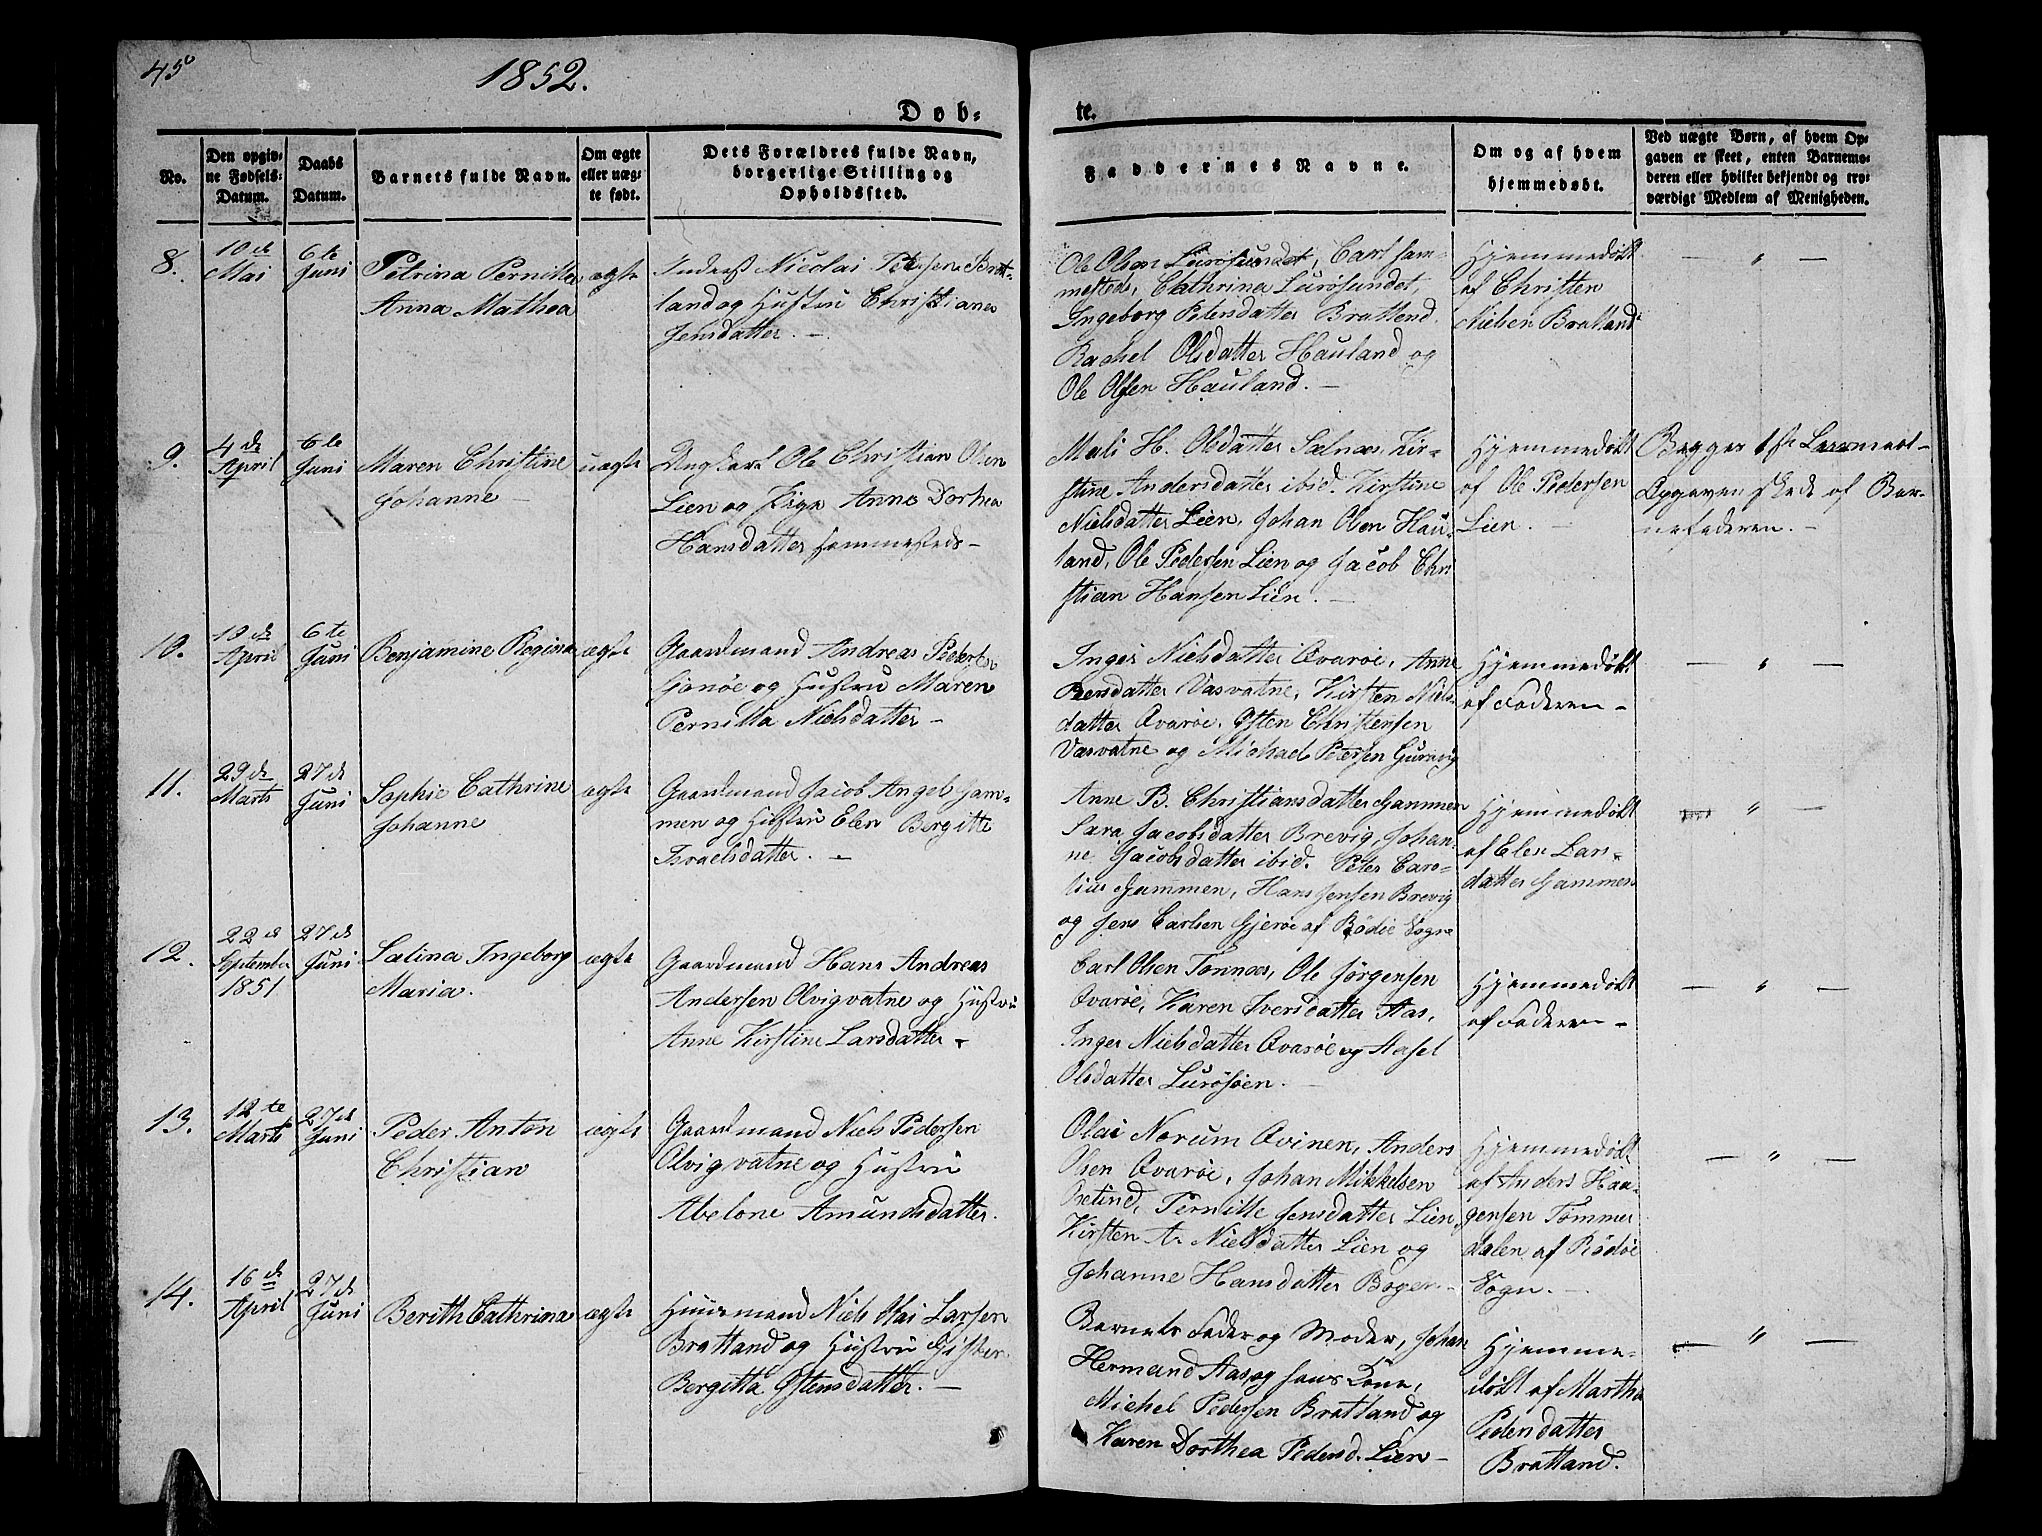 45
1852.
Døb-
te.
No.
Den opgiv-
ne Fødsels-
Datum.
Daabs
Datum.
Barnets fulde Navn.
Om ægte
eller uæg-
te født.
Dets Forældres fulde Navn,
borgerlige Stilling og
Opholdssted.
Faddernes Navne.
Om og af hvem
hjemmedøbt.
Ved uægte Børn, af hvem Op-
gaven er skeet, enten Barnemo-
deren eller hvilket bekjendt og tro-
værdigt Medlem af Menigheden.
8.
10de
Mai
6te
Juni
Petrina Pernille
Anna Mathea
ægte
Inderst Nicolai Petersen Brat-
land og Hustru Christiane
Jensdatter. -
Ole Olsen Lurøsundet, Carl sam-
mesteds, Cathrina Lurøsundet,
Ingeborg Petersdatter Brattland
Rachel Olsdatter Hauland og
Ole Olsen Hauland. -
Hjemmedøbt
af Christen
Nielsen Bratland
- " -
9.
4de
April
6te
Juni
Maren Christine
Johanne -
uægte
Ungkarl Ole Christian Olsen
Lien og Pige Anne Dorthea
Hansdatter sammesteds -
Mali H. Olsdatter Selnæs, Kir-
stine Andersdatter ibid. Kirstine
Nielsdatter Lien, Johan Olsen Hau-
land, Ole Pedersen Lien og Jacob Chri
stian Hansen Lien. -
Hjemmedøbt
af Ole Pedersen
Lien. -
Begges 1ste Leiermaal -
Opgaven skede af Bar-
nefaderen. -
10.
10de
April
6te
Juni
Benjamine Regina
ægte
Gaardmand Andreas Peders.
og Hustru Maren
Pernilla Nielsdatter -
Inger Nielsdatter Qvarøe, Anne
Peersdatter Vasvatne, Kirsten Niels-
datter Qvarøe, Østen Christensen
Vasvatne og Michael Petersen Gurvig
Hjemmedøbt
af Faderen -
- " -
11.
29de
Marts
27de
Juni
Sophie Cathrine
Johanne
ægte
Gaardmand Jacob Angel Gam-
men og Hustru Elen Bergitte
Israelsdatter. -
Anne B. Christiansdatter Gammen
Sara Jacobsdatter Brevig, Johan-
ne Jacobsdatter ibid. Peter Caro-
lius Gammen, Hans Jensen Brevig
og Jens Carlsen Gjerøe af Rødøe Sogn
Hjemmedøbt
af Elen Lars-
datter Gammen
" -
12.
22de
September
1851
27de
Juni
Salina Ingeborg
Maria.
ægte
Gaardmand Hans Andreas
Andersen Olvigvatne og Hustru
Anne Kirstine Larsdatter -
Carl Olsen Tonnæs, Ole Jørgensen
Qvarøe, Karen Iversdatter Aas,
Inger Nielsdatter Qvarøe og Hasel
Olsdatter Lurøsøen. -
Hjemmedøbt
af Faderen -
- " -
13.
12te
Marts
27de
Juni
Peder Anton
Christian
ægte
Gaardmand Niels Pedersen
Olvigvatne og Hustru
Abelone Amundsdatter.
Olai Norum Qvinen, Anders
Olsen Qvarøe, Johan Mikkelsen
Pernille Jensdatter Lien,
Kirsten A. Nielsdatter Lien og
Johanne Hansdatter Bogen -
Hjemmedøbt
af Anders Haa-
gensen Tømmer
dalen af Rødøe
Sogn. -
- " -
14.
16de
April
27de
Juni
Berith Cathrina
ægte
Huusmand Niels Kai Larsen
Bratland og Hustru
Bergitta Østensdatter. -
Barnets Fader og Moder, Johan
Hermand Aas og hans Kone,
Michel Pedersen Bratland og
Karen Dorthea Pedersd. Lien -
Hjemme-
døbt af Martha
Pedersdatter
Bratland.
- " -